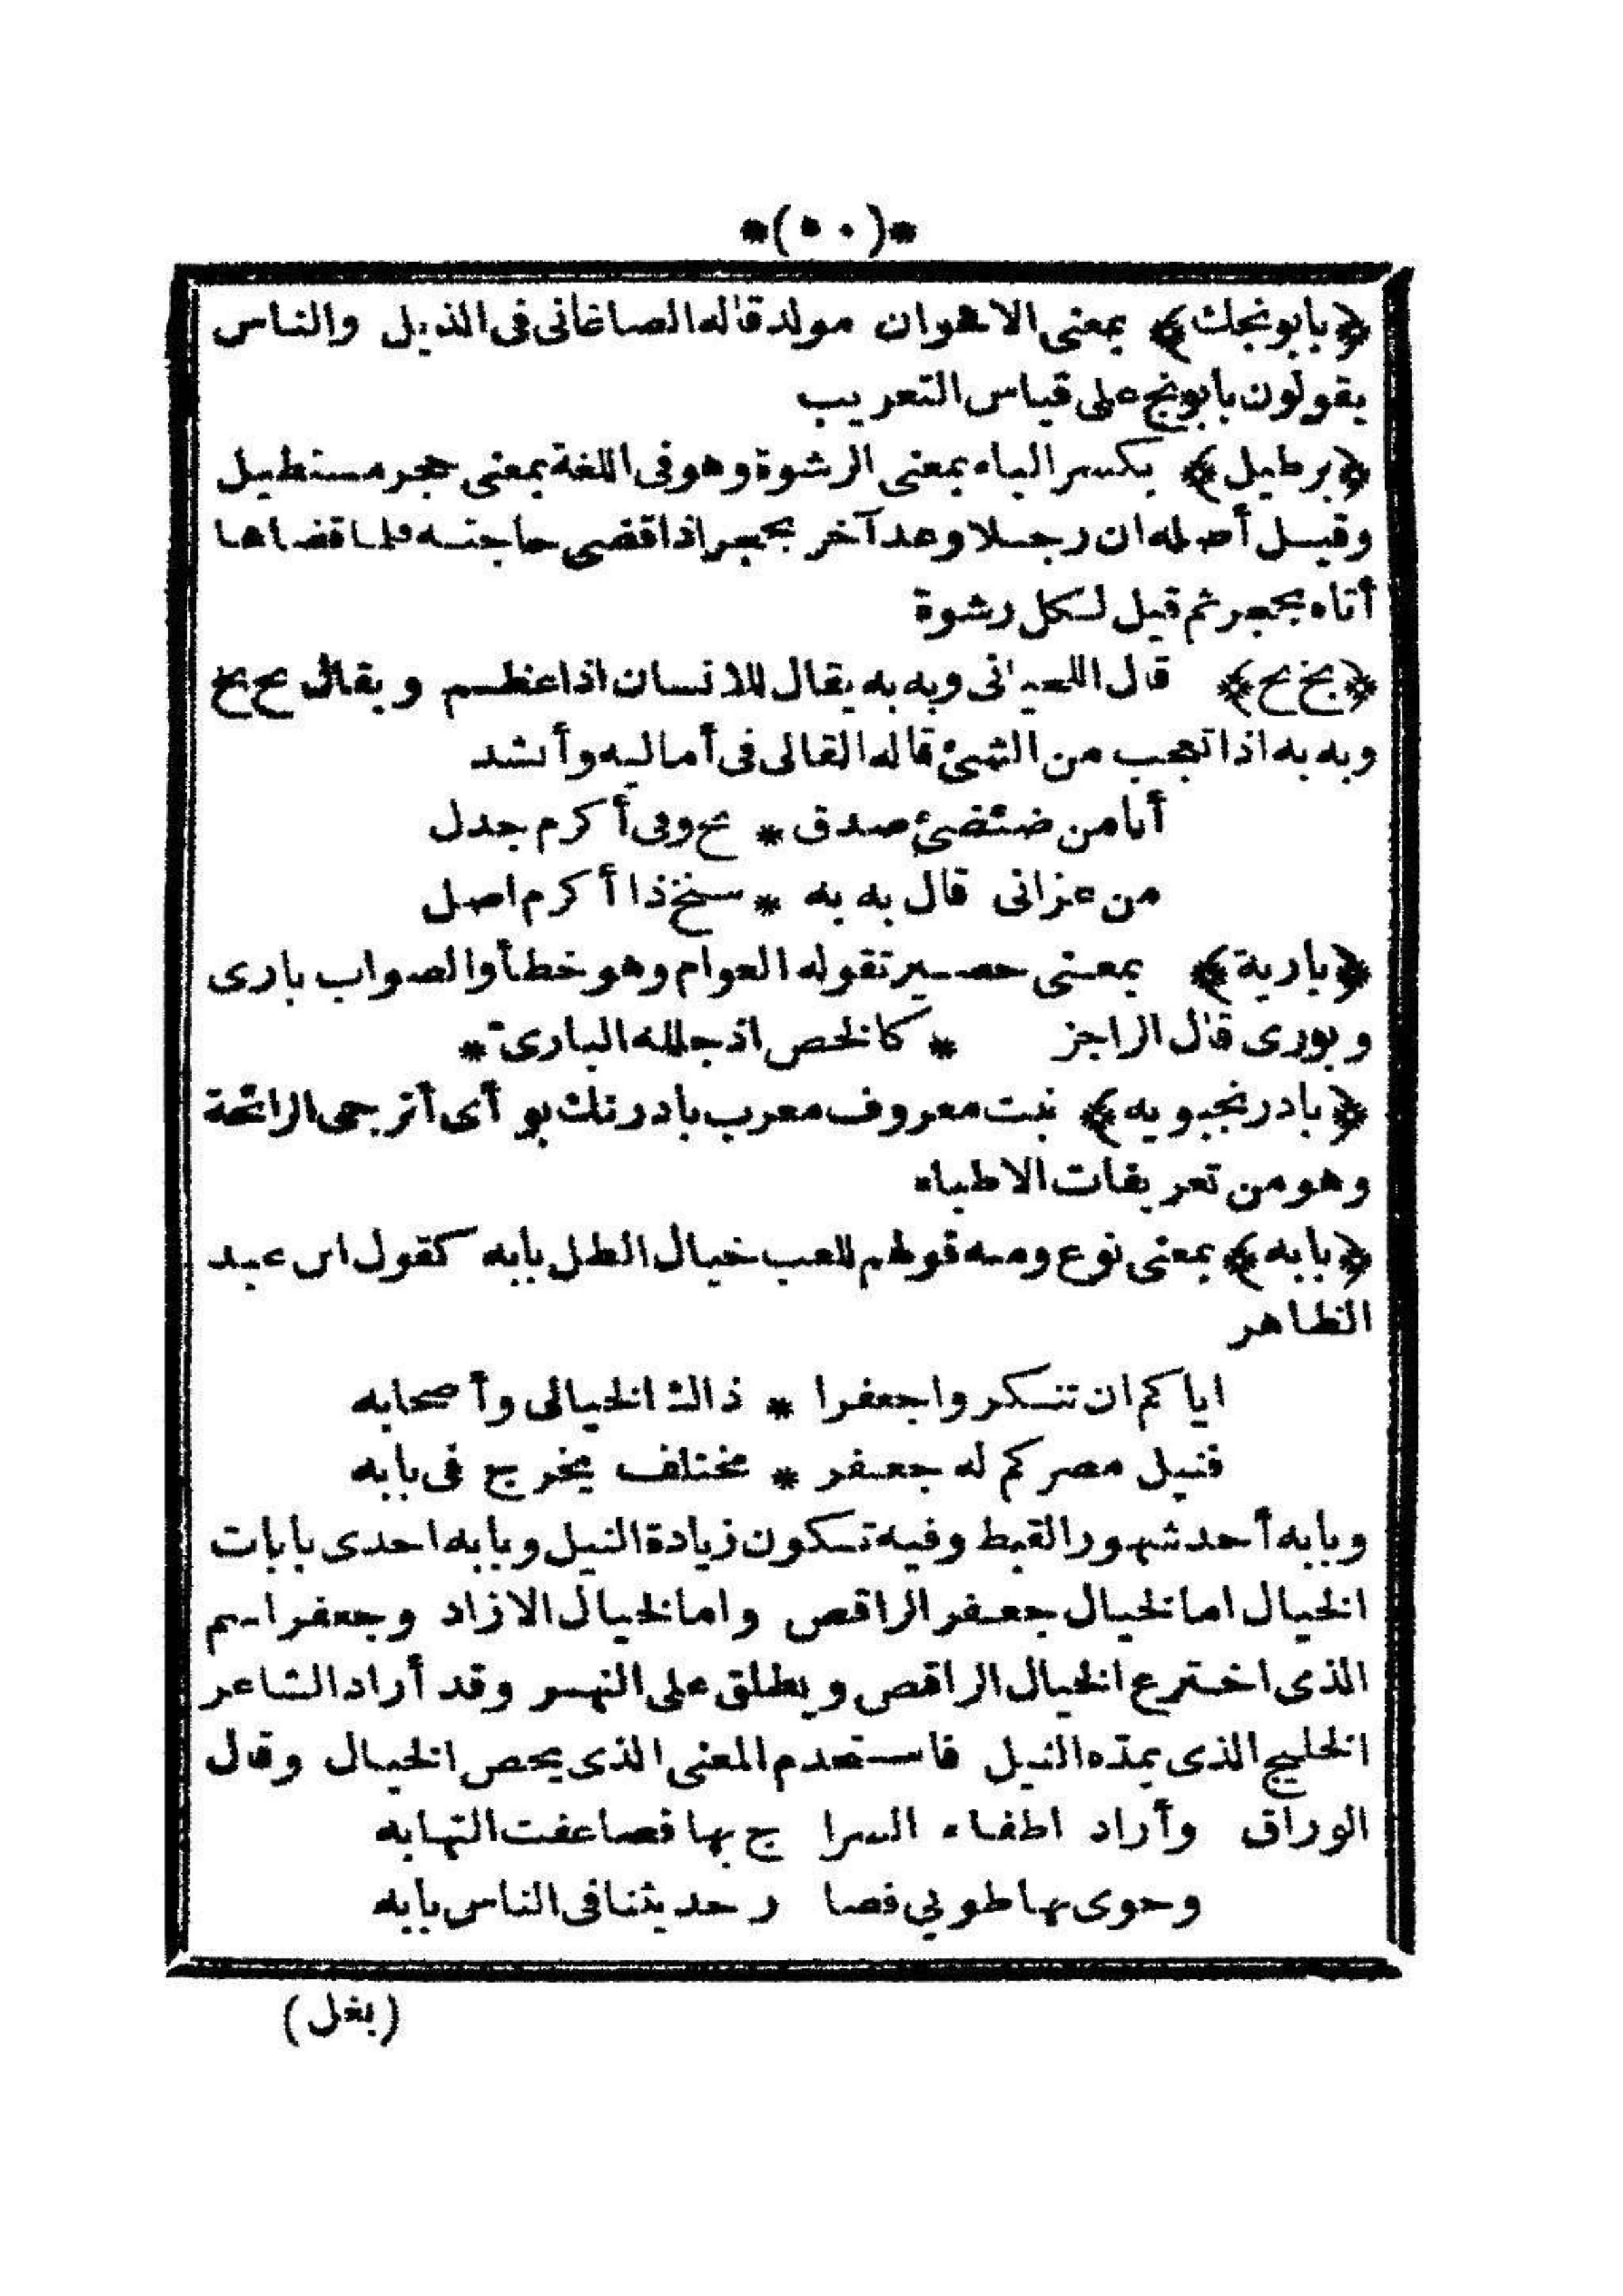 *(٥٠)*
﴿بابونجك﴾ بمعنى الاقحوان مولد قاله الصاغانى فى الذيل والناس
يقولون بابونج على قياس التعريب
﴿برطيل﴾ بكسر الباء بمعنى الرشوة وهو فى اللغة بمعنى حجر مستطيل
وقيل أصله ان رجلا وعد آخر بحجر اذا قضى حاجته فلما قضاها
أتاه بحجر ثم قيل لكل رشوة
﴿بخ بخ﴾ قال اللحيانى وبه به يقال للانسان اذا عظم ويقال بخ بخ
وبه به اذا تعجب من الشئ قاله القالى فى أماليه وأنشد
أنا من ضئضئ صدق * بخ وفى أكرم جدل
من عزانى قال به به * سنخ ذا أكرم اصل
﴿بارية﴾ بمعنى حصير تقوله العوام وهو خطأ والصواب بارى
وبورى قال الراجز * كالخص اذ جلله البارى *
﴿بادرنجبويه﴾ نبت معروف معرب بادرنك بو أى أترجى الرائحة
وهو من تعريفات الاطباء
﴿بابه﴾ بمعنى نوع ومنه قولهم للعب خيال الظل بابه كقول ابن عبد
الظاهر
اياكم ان تنكروا جعفرا * ذاك الخيالى وأصحابه
فنيل مصر كم له جعفر * مختلف يخرج فى بابه
وبابه أحد شهور القبط وفيه تكون زيادة النيل وبابه احدى بابات
الخيال اما لخيال جعفر الراقص واما لخيال الازاد وجعفر اسم
الذى اخترع الخيال الراقص ويطلق على النهر وقد أراد الشاعر
الخليج الذى يمده النيل فاستخدم المعنى الذى يخص الخيال وقال
الوراق وأراد اطفاء السرا ج بها فضاعفت التهابه
وحوى بها طوبي فصا ر حديثنا فى الناس بابه
(بغل)